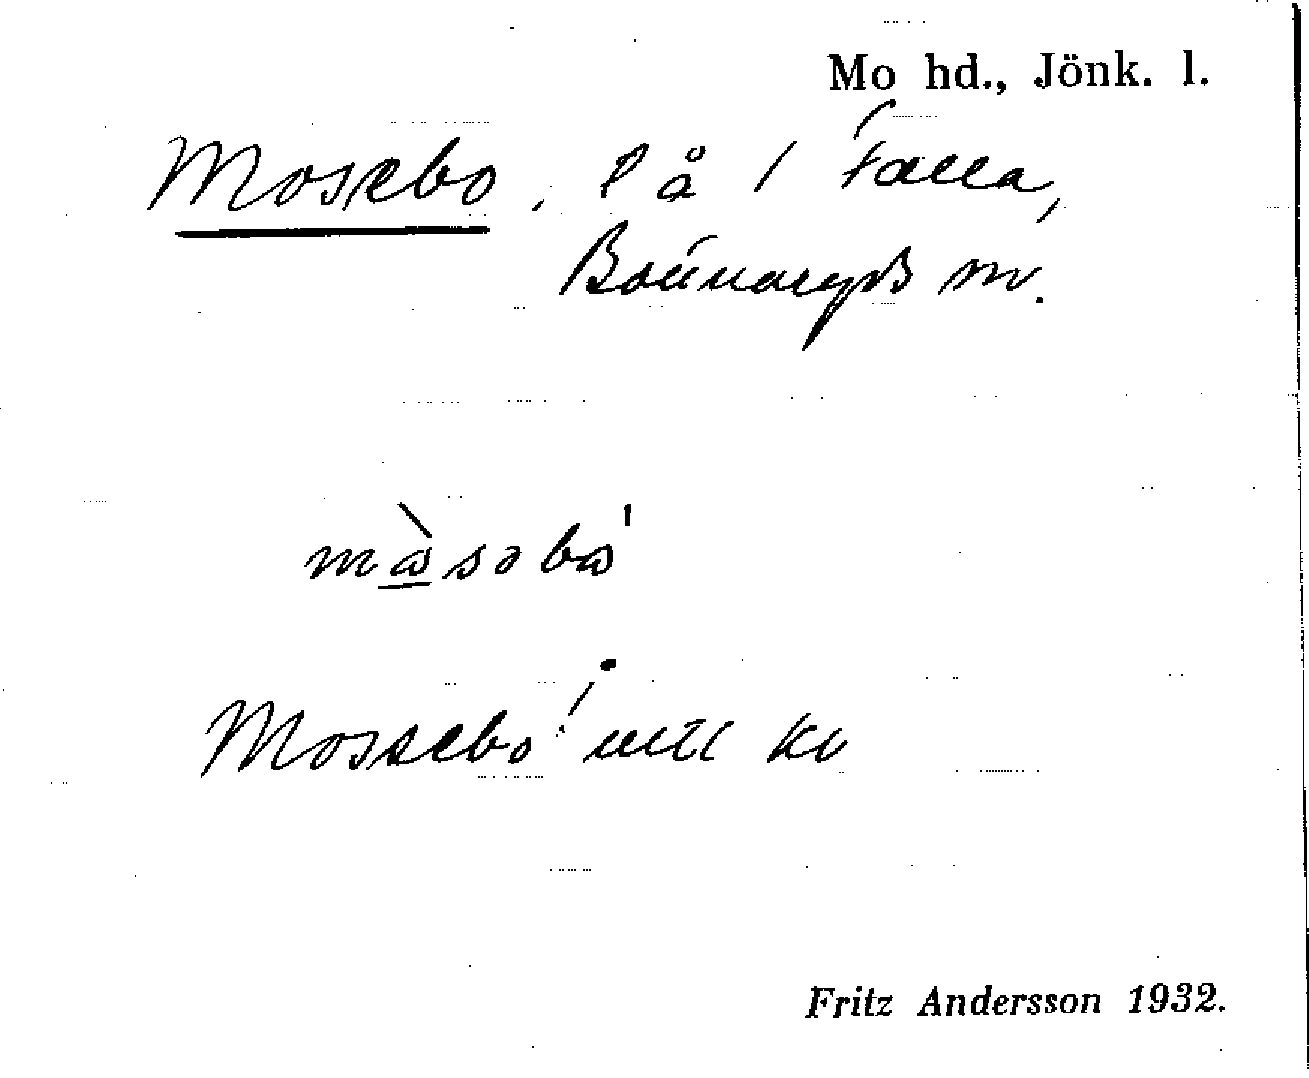 Mo hd., Jönk. l.
Mosebo, l å 1 Falla,
Bottnaryds sn.
mòsəbo'
Mossebo
Fritz Andersson 1932.